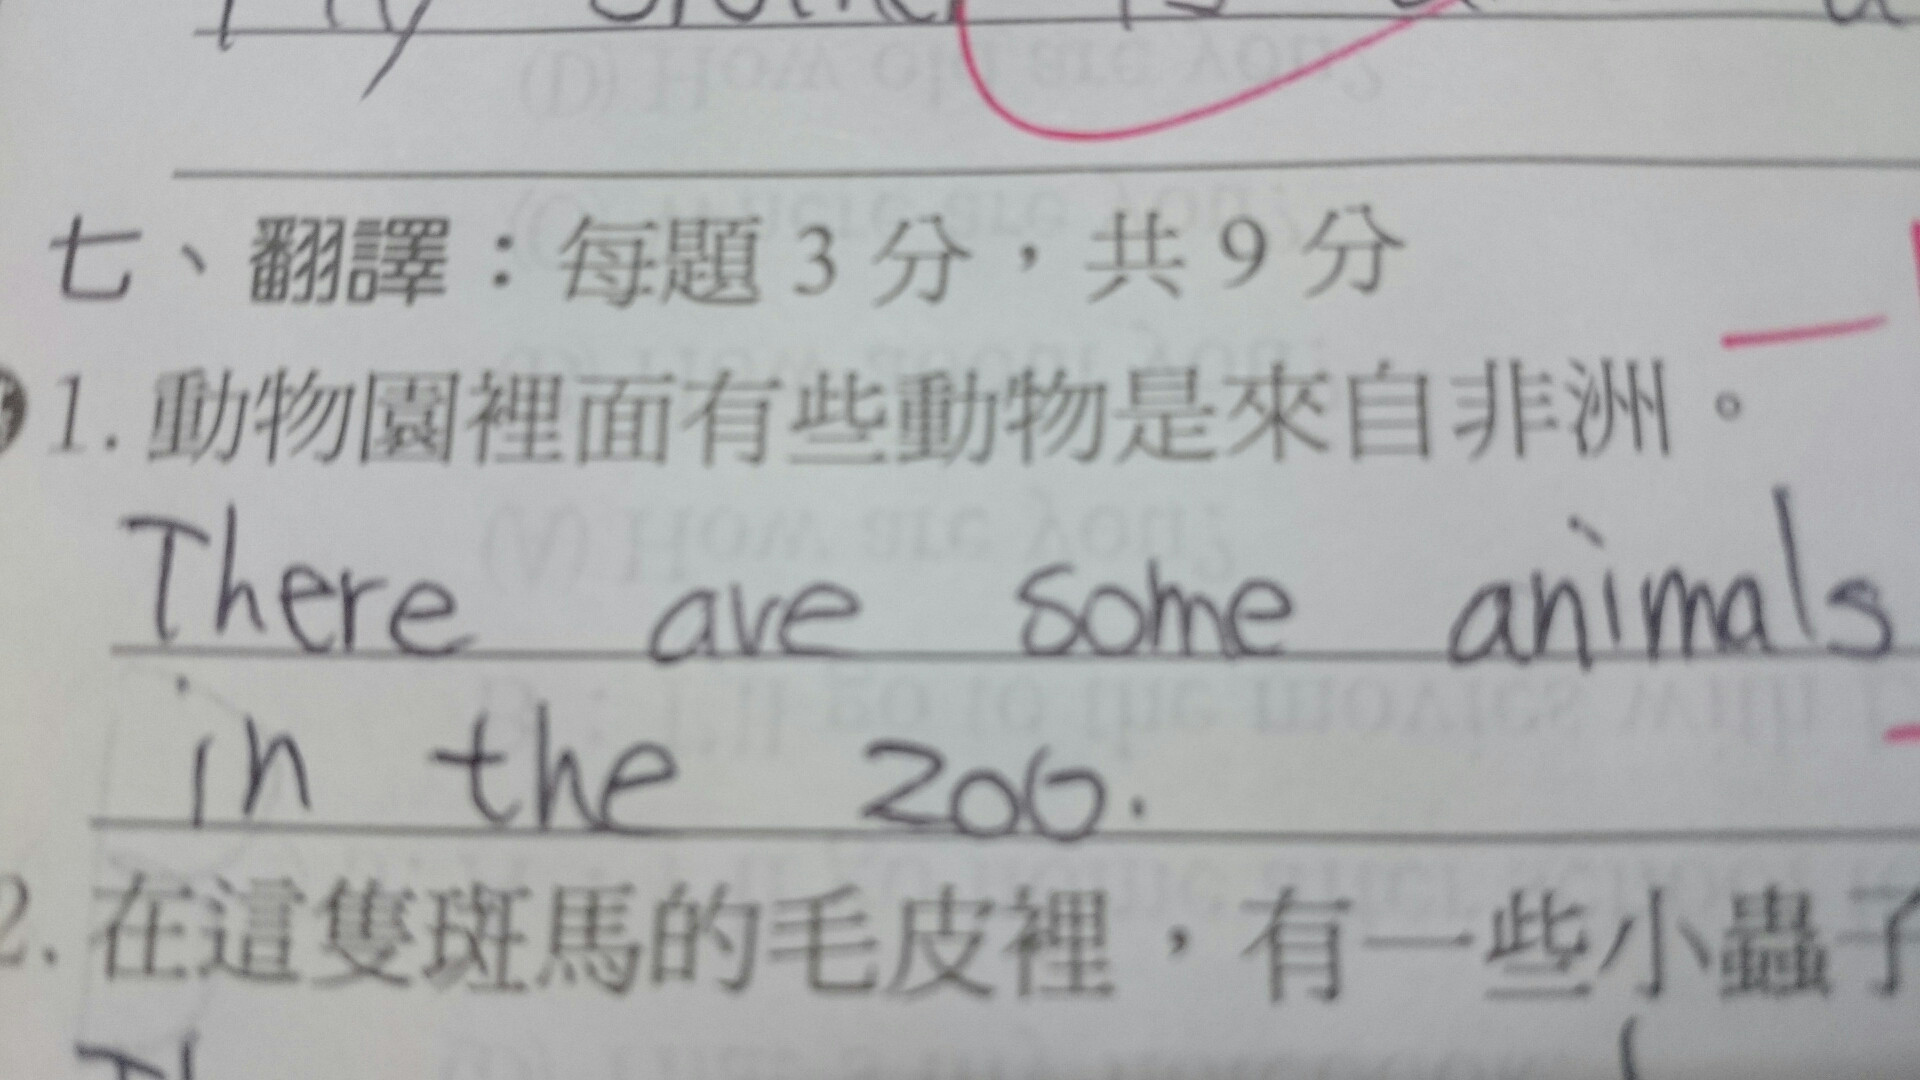 七、翻譯：每題3分，共9分
1. 動物園裡面有些動物是來自非洲。
There are some animals
in the zoo.
2. 在這隻斑馬的毛皮裡，有一些小蟲子